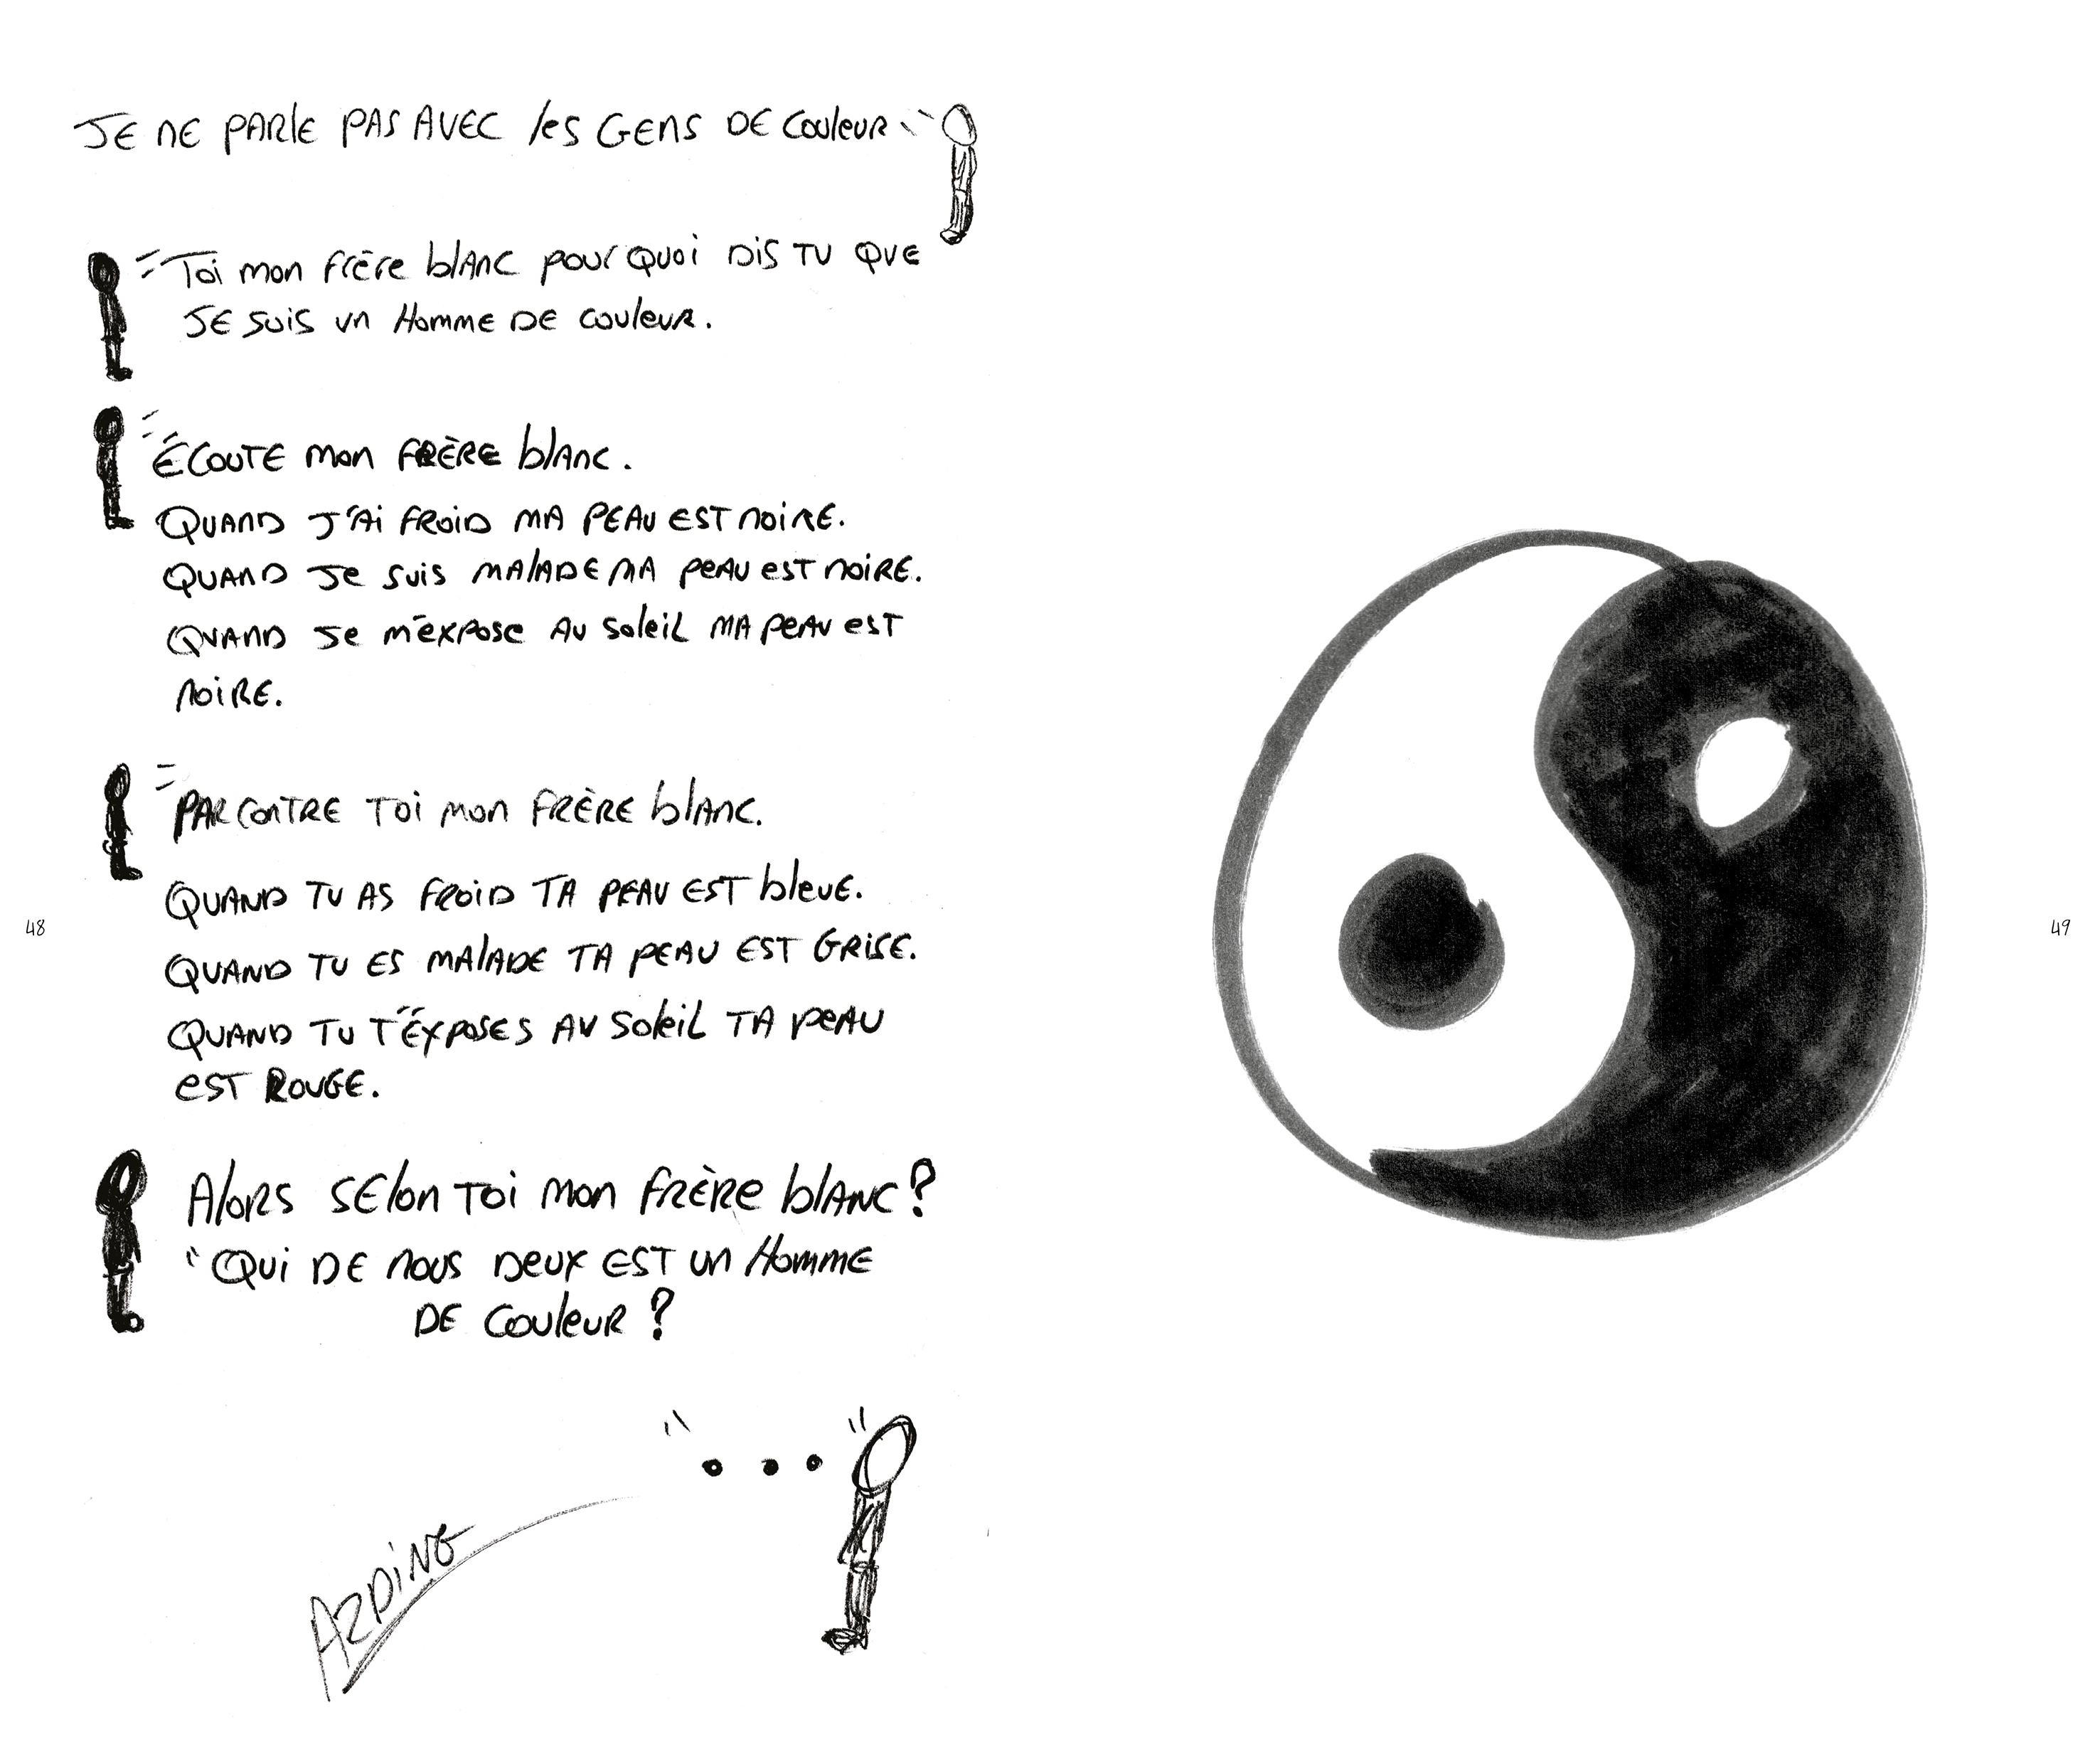 JE NE PARLE PAS AVEC les GENS DE COULEUR
Toi mon frère blANC pourquoi Dis TU QUE
JE SUIS UN Homme DE couleur.
ÉCOUTE mon FRÈRE blANC.
QUAND J'Ai FROID MA PEAU EST NOIRE.
QUAND Je suis MALADE MA PEAU EST NOIRE.
QUAND Je m'expose AU Soleil MA PEAU EST
NOIRE.
PAR CONTRE TOI mon FRÈRE blANC.
QUAND TU AS FROID TA PEAU EST bleue.
QUAND TU ES MALADE TA PEAU EST GRISE.
QUAND TU T'ÉXPOSES AU Soleil TA PEAU
EST ROUGE.
Alors SElon Toi mon FRÈRE blANC?
"QUi DE NOUS DEUX EST UN Homme
DE COULEUR?
" . . . "
AZDiNG
48
49